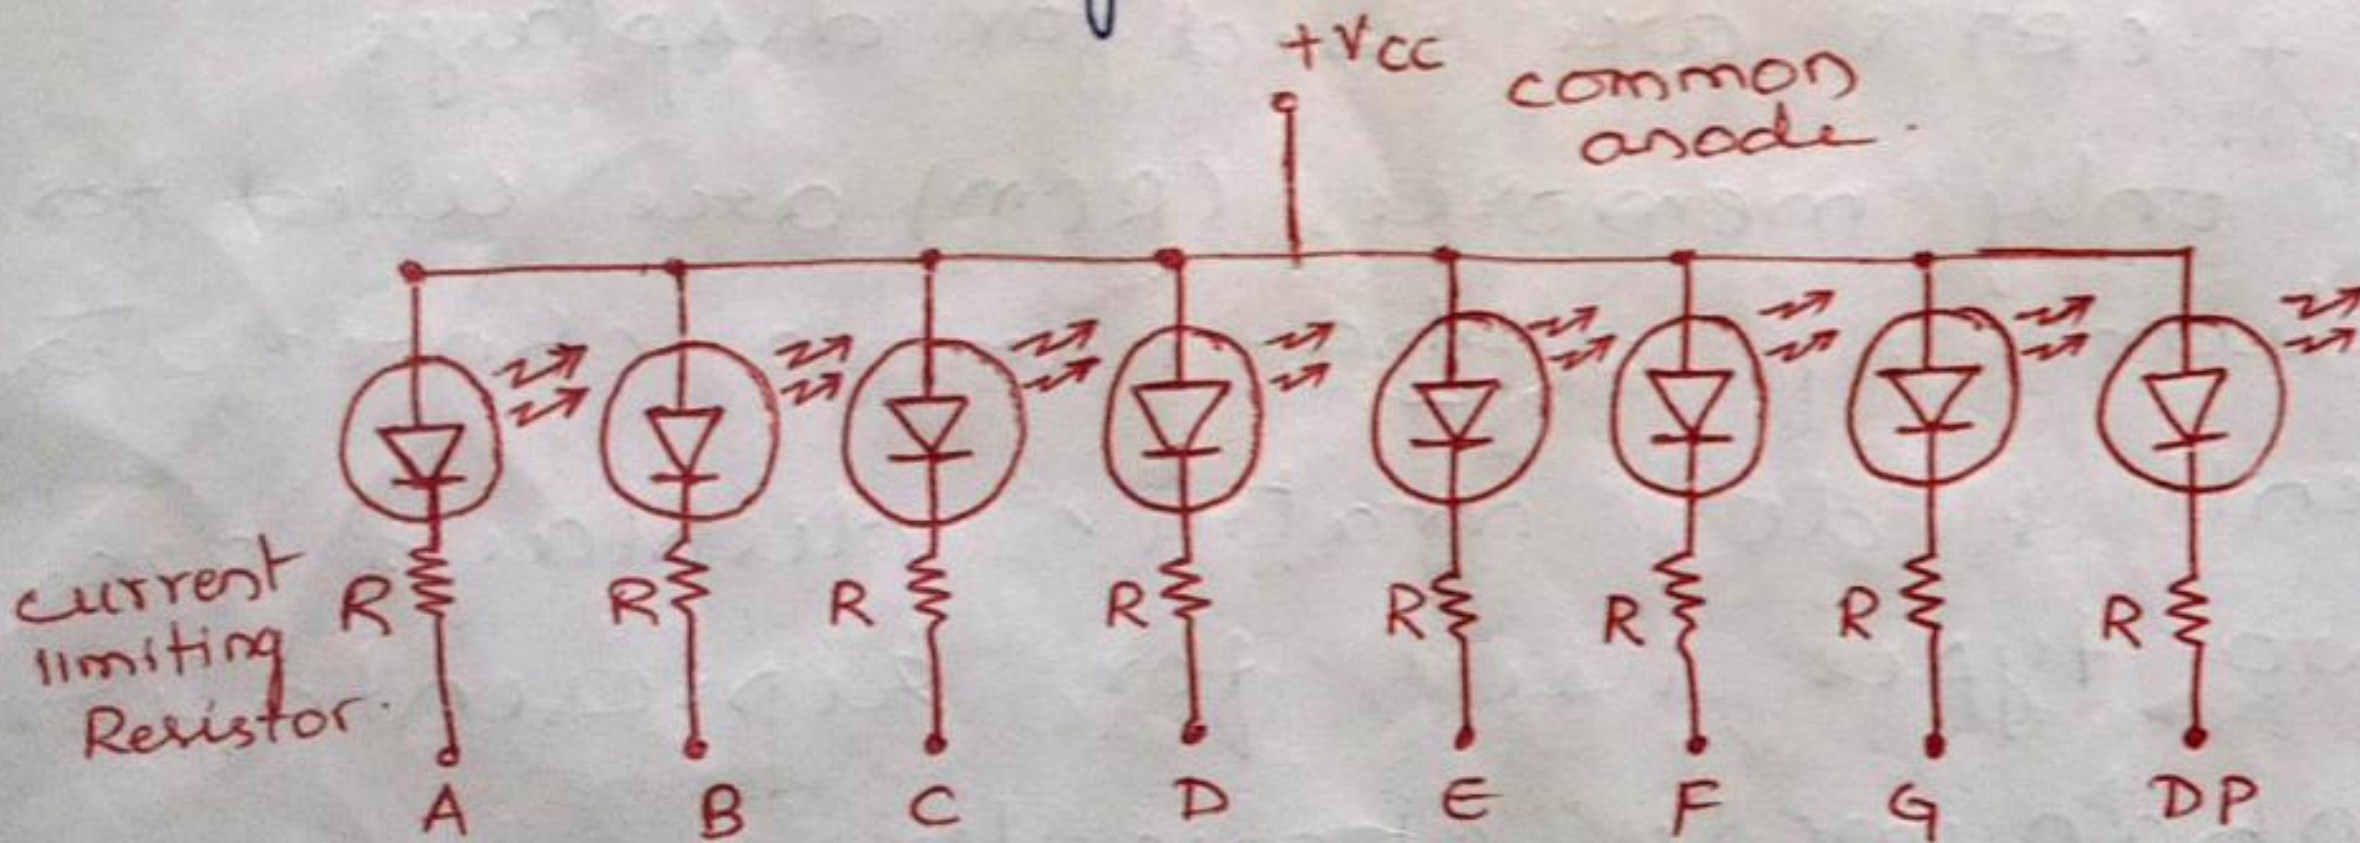 +VCC
common
anode.
current
limiting
Resistor.
R R R R R R R R
A B C D E F G DP